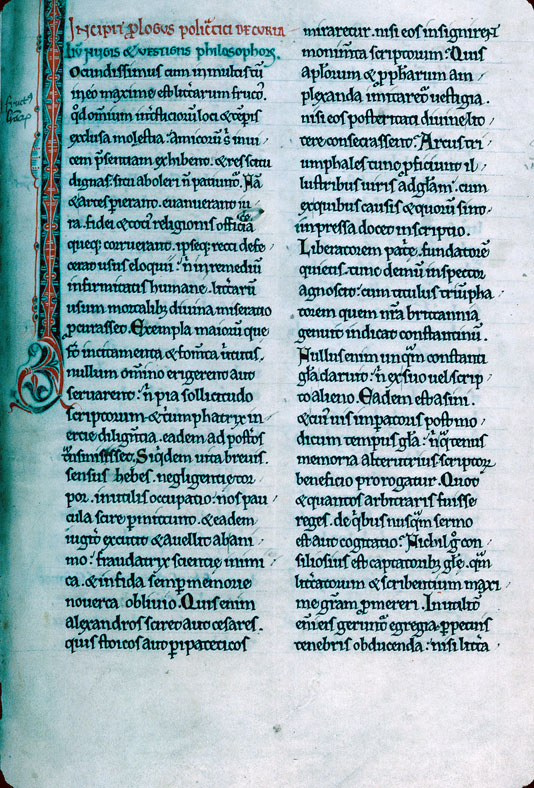 Incipit plogus policᷓtici de curia
liū nugis & vestigiis philosophoꝝ.
Iocundissimus cum in multis tū
in eo maxime est litt̄arum fruct᷒.
qđ omnium int̄sticiorū loci & tēpis
exclusa molestia: amicorū sͥ invi
cem p̄sentiam exhibent. & res scitu
dignas situ aboleri ñ patiunt᷑. Nā
& artes perierant. evanuerant iu
ra. fidei & toci᷒ religionis officia
queq; corruerant. ipseq; recti defe
cerat usus eloquii: ñ in remediū
infirmitatis humane. litt̄arū
usum mortalib; divina miseratio
p̄curasset. Exempla maiorū que
sт̄ incitamenta & fom̄ta virtutis.
nullum om̄ino erigerent aut
servarent: ñ pia sollicitudo
scriptorum & triumphatrix in
ertie diligentia. eadem ad post̄os
transmisisset. Siqidem vita brevis.
sensus hebes. negligentie tor
por. inutilis occupatio: nos pau
cula scire pmittunt. & eadem
iugit̄ excutit & avellit ab ani
mo: fraudatrix scientie inimi
ca. & infida semp memorie
noverca oblivio. Quis enim
alexandros sciret aut cesares.
quis stoicos aut pipateticos
miraretur. nisi eos insignirent
monim̄ta scriptorum: Quis
apl̄orum & pphārum am
plexanda imitaret᷑ vestigia.
nisi eos posteritati divine lit̄
tere consecrassent: Arcus tri
umphales tunc pficiunt il
lustribus viris ad glām. cum
ex quibus causis & quorū sint.
impressa docet inscriptio.
Liberatorem pat̄e. fundatorē
quietis. tunc demū inspector
agnoscit: cum titulus triūpha
torem quem nr̄a britannia
genuit indicat constantinū.
Nullus enim unqͣm constanti
glā̄ claruit: ñ ex suo vel scrip
to alieno. Eadem est asini.
& cui᷒vis impatoris post mo
dicum tempus glā: ñ qͣtenus
memoria alterutrius. scriptoꝝ
beneficio prorogatur. Quot
& quantos arbitraris fuisse
reges. de qͥbus nusqͣm sermo
est aut cogitatio: Nichil g̊ con
siliosius est captatorib; glē. qͣm
litt̄atorum & scribentium maxi
me gr̄am pmereri. Inutilit̄
enī eis gerunt᷑ egregia. ppetuis
tenebris obducenda: nisi litt̄a